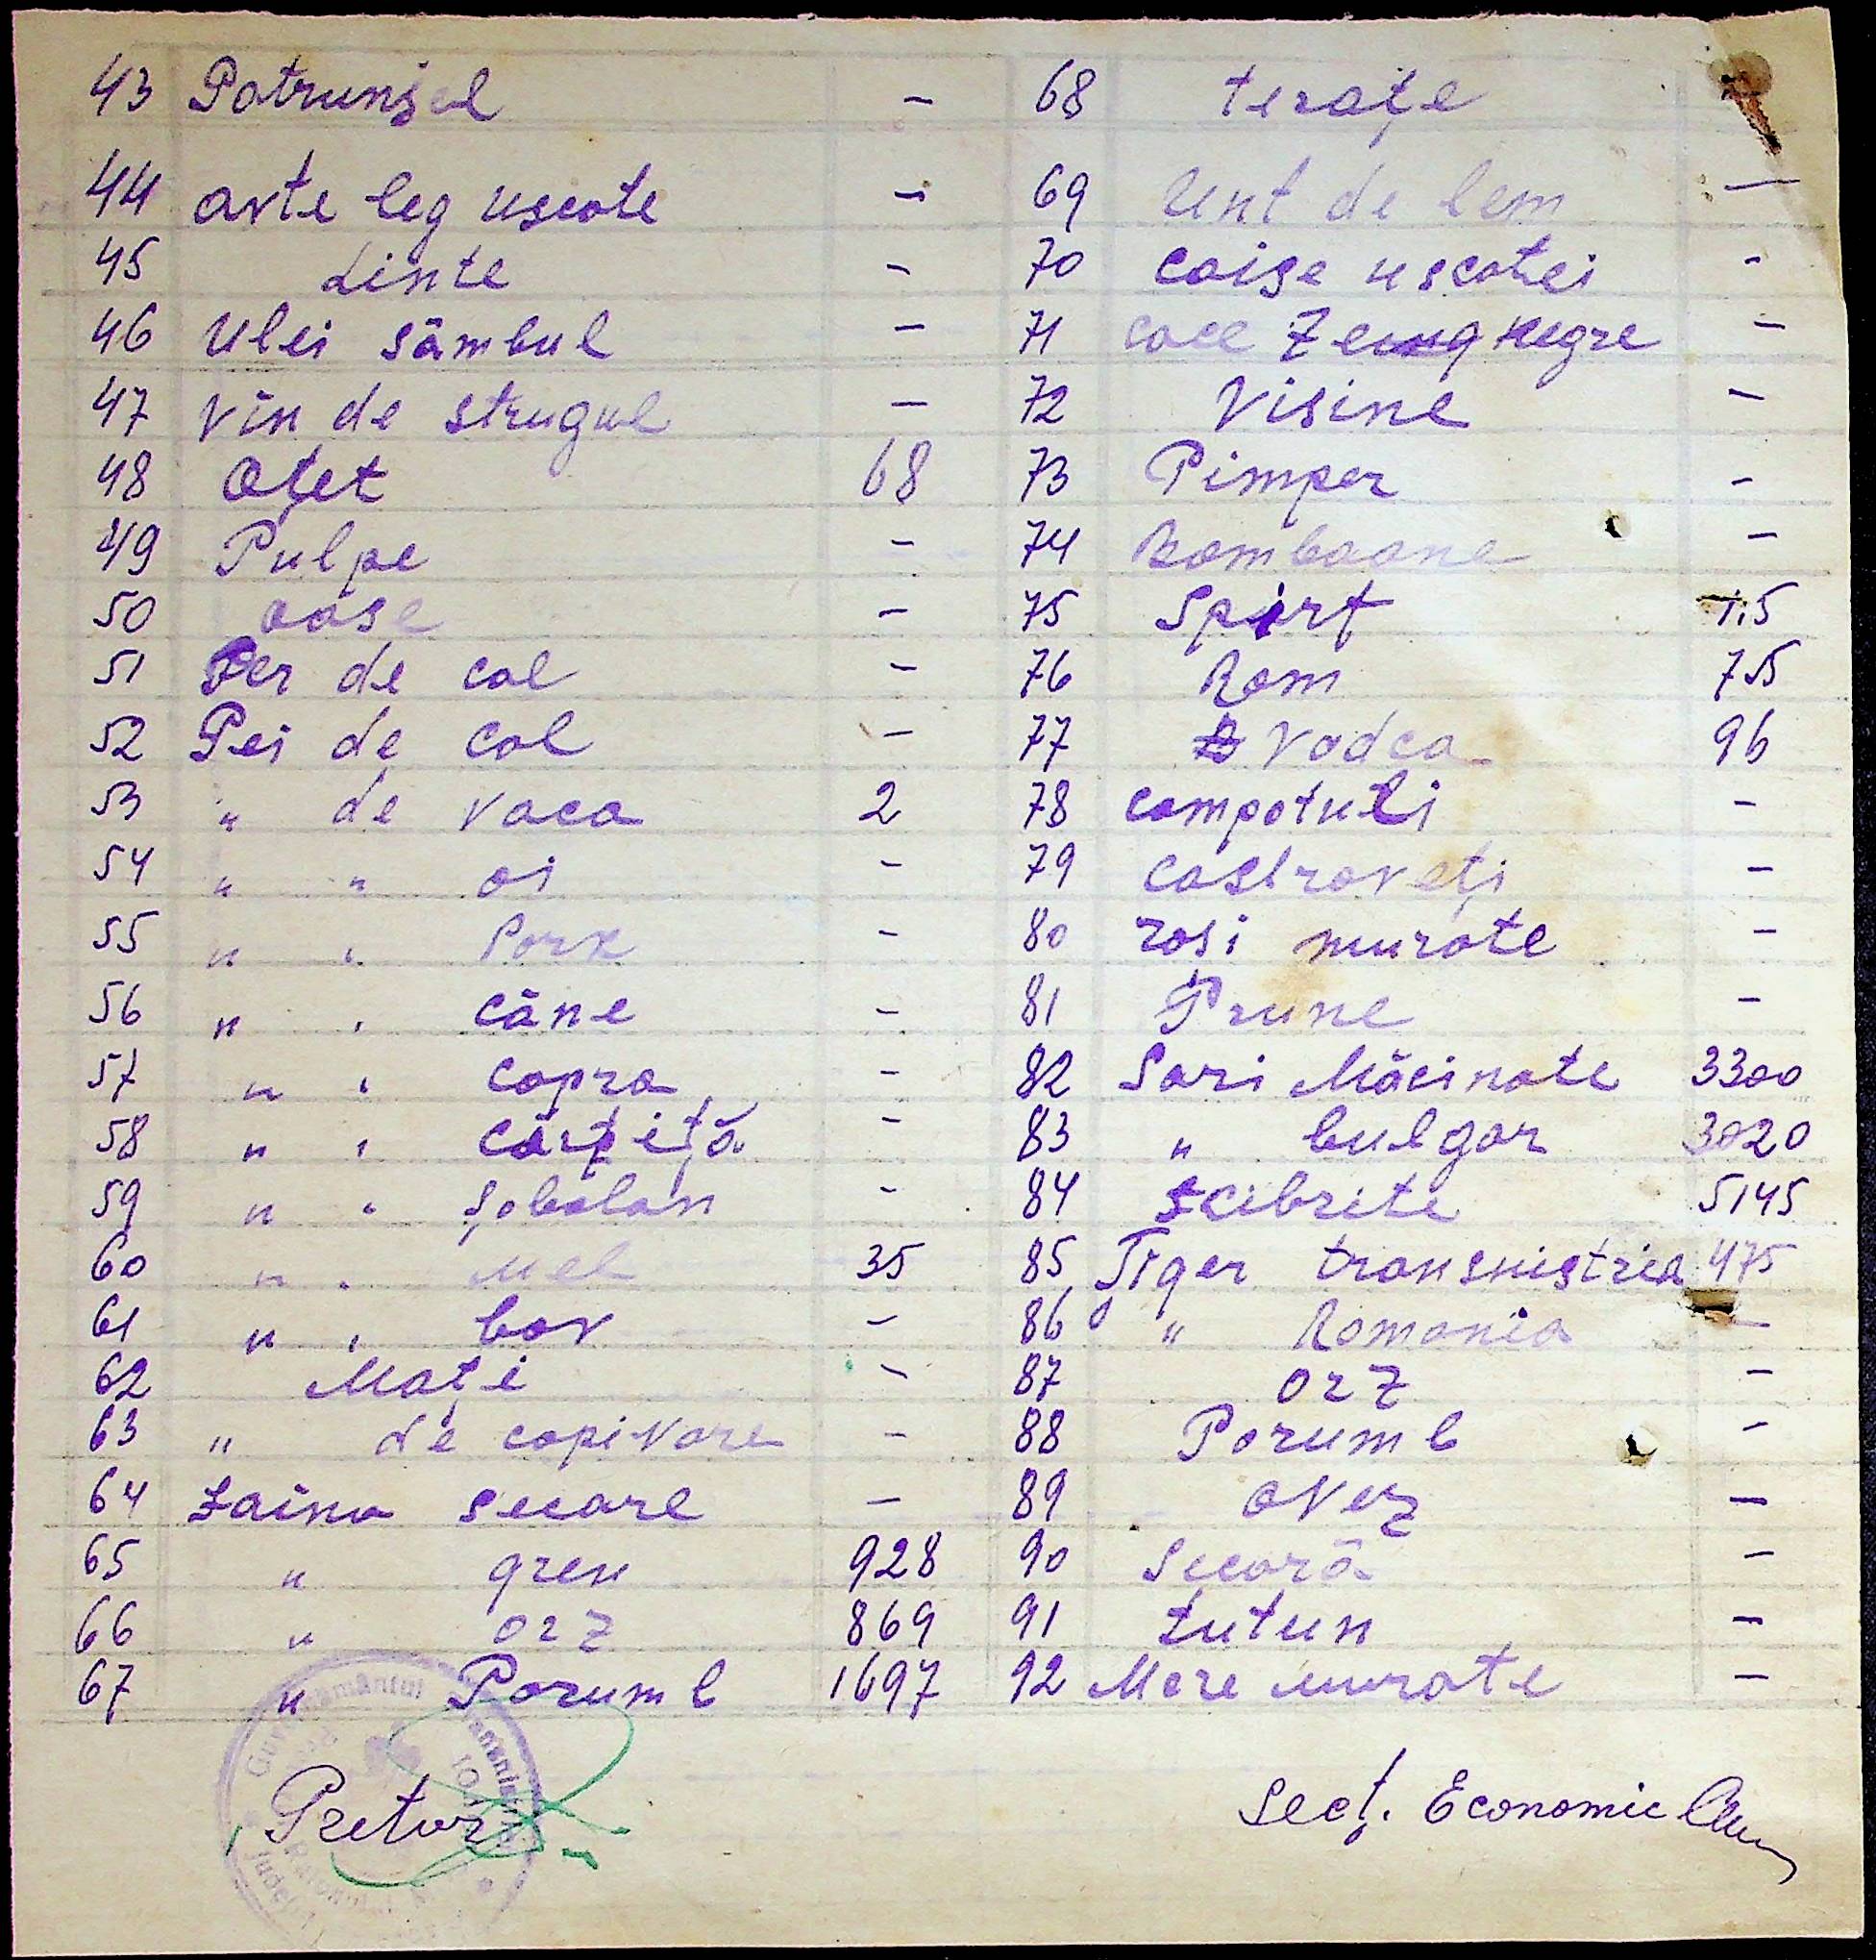 43 Patrunjel -
44 arte leg uscate -
45 Linte -
46 Ulei sâmbul -
47 Vin de strugul -
48 Oțet 68
49 Pulpe -
50 oase -
51 Per de cal -
52 Pei de cal -
53 " de vaca 2
54 " " oi -
55 " " Pork -
56 " " câne -
57 " " capra -
58 " " cârtiță -
59 " " șobolan -
60 " " Mel 35
61 " " bov -
62 Mațe -
63 " de copivare -
64 Faina secare -
65 " gren 928
66 " orz 869
67 " Porumb 1697
68 terațe
69 Unt de lem -
70 caise uscatei -
71 negre -
72 Visine -
73 Pimper -
74 Bomboane -
75 Spirt 1.5
76 Rom 75
77 Vodca 96
78 compotuli -
79 castraveți -
80 rosi murate -
81 Prune -
82 Sari Măcinate 3300
83 " bulgar 3020
84 scibrite 5145
85 Tiger transnistria 475
86 " Romania -
87 orz -
88 Porumb -
89 overz -
90 Secară -
91 tutun -
92 Mere murate -
Pretor
Secț. Economic
Guvernământul
Județul